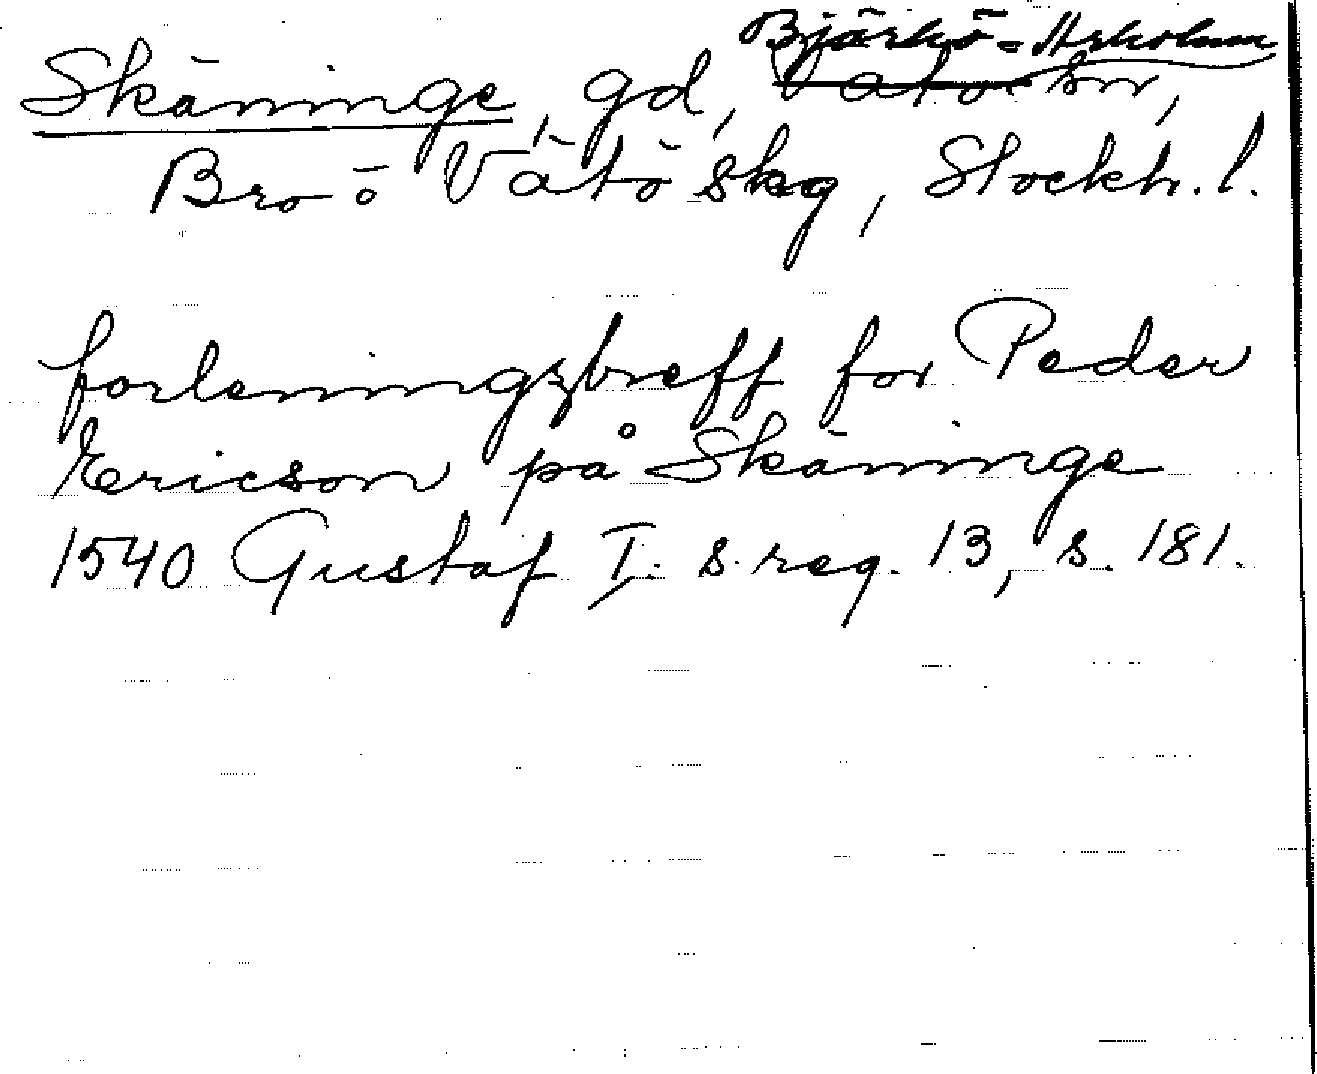 Björkö-Arholma
Skäninge, gd, Vätö sn,
Bro o Vätö skg, Stockh. l.
forleningsbreff for Peder
Ericson på Skäninge
1540 Gustaf I. s. reg. 13, s. 181.